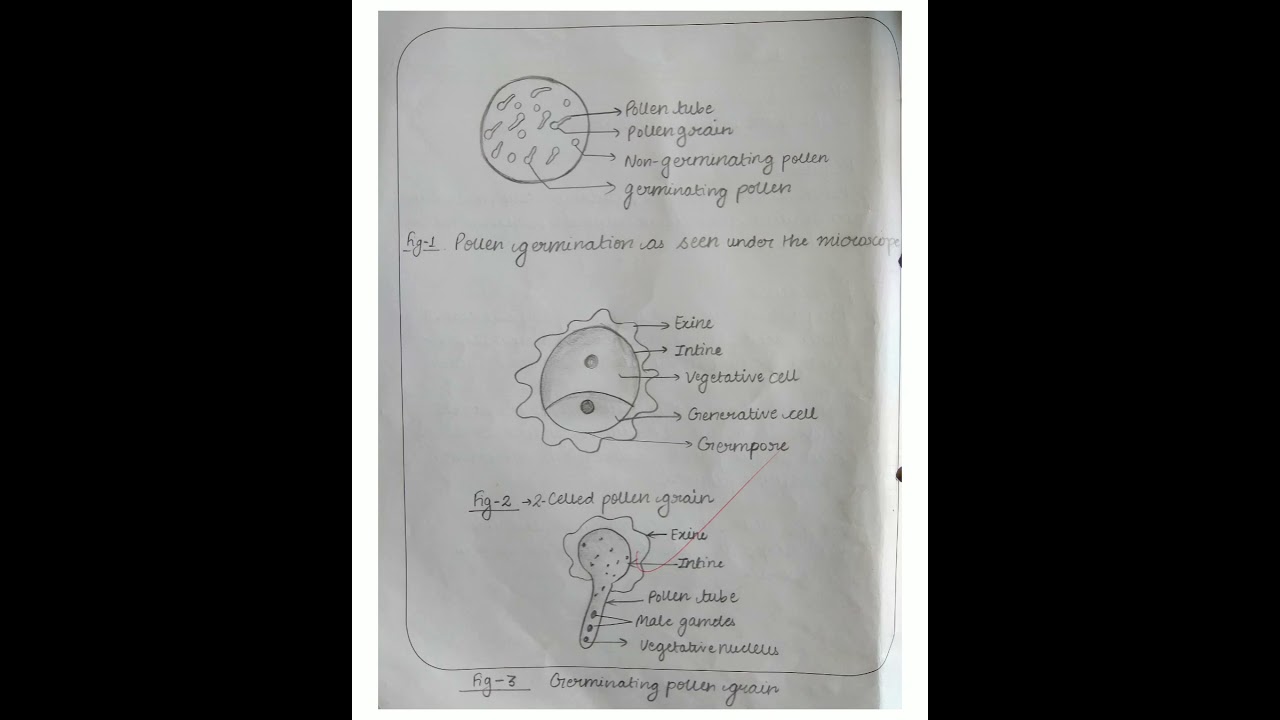 Pollen tube
Pollen grain
Non-germinating pollen
germinating pollen
Fig-1 Pollen germination as seen under the microscope
Exine
Intine
Vegetative cell
Generative cell
Germpore
Fig-2 → 2-Celled pollen grain
Exine
Intine
Pollen tube
Male gametes
Vegetative nucleus
Fig-3 Germinating pollen grain